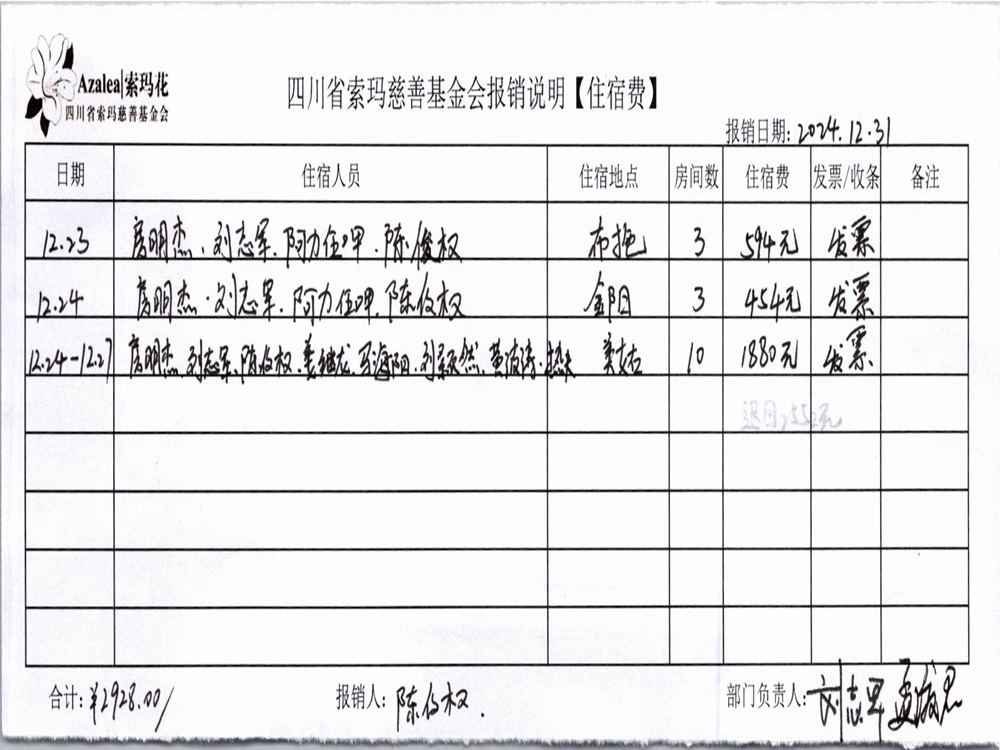 Azalea|索玛花
四川省索玛慈善基金会
四川省索玛慈善基金会报销说明【住宿费】
报销日期:2024.12.31
日期 住宿人员 住宿地点 房间数 住宿费 发票/收条 备注
12.23 房明杰、刘志军、阿力伍呷、陈俊权 布拖 3 594元 发票
12.24 房明杰、刘志军、阿力伍呷、陈俊权 金阳 3 454元 发票
12.24-12.27 房明杰、刘志军、陈俊权、姜继龙、刘 然、黄波涛、 美姑 10 1880元 发票
合计:¥2928.00/ 报销人:陈俊权. 部门负责人:刘志军